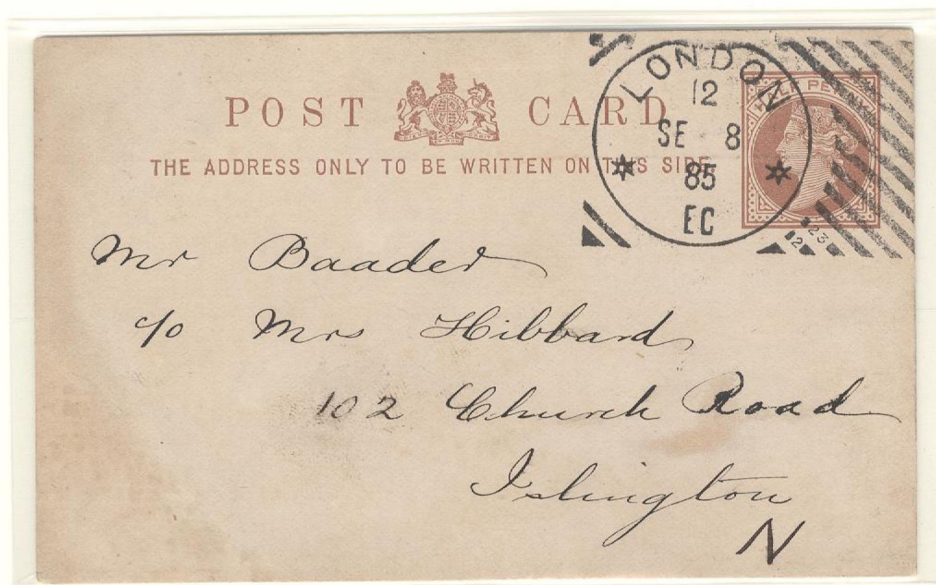 POST CARD
THE ADDRESS ONLY TO BE WRITTEN ON THIS SIDE
LONDON
12
SE 8
85
EC
HALF PENNY
23
12
Mr Baader
c/o Mrs Hibbard
102 Church Road
Islington
N